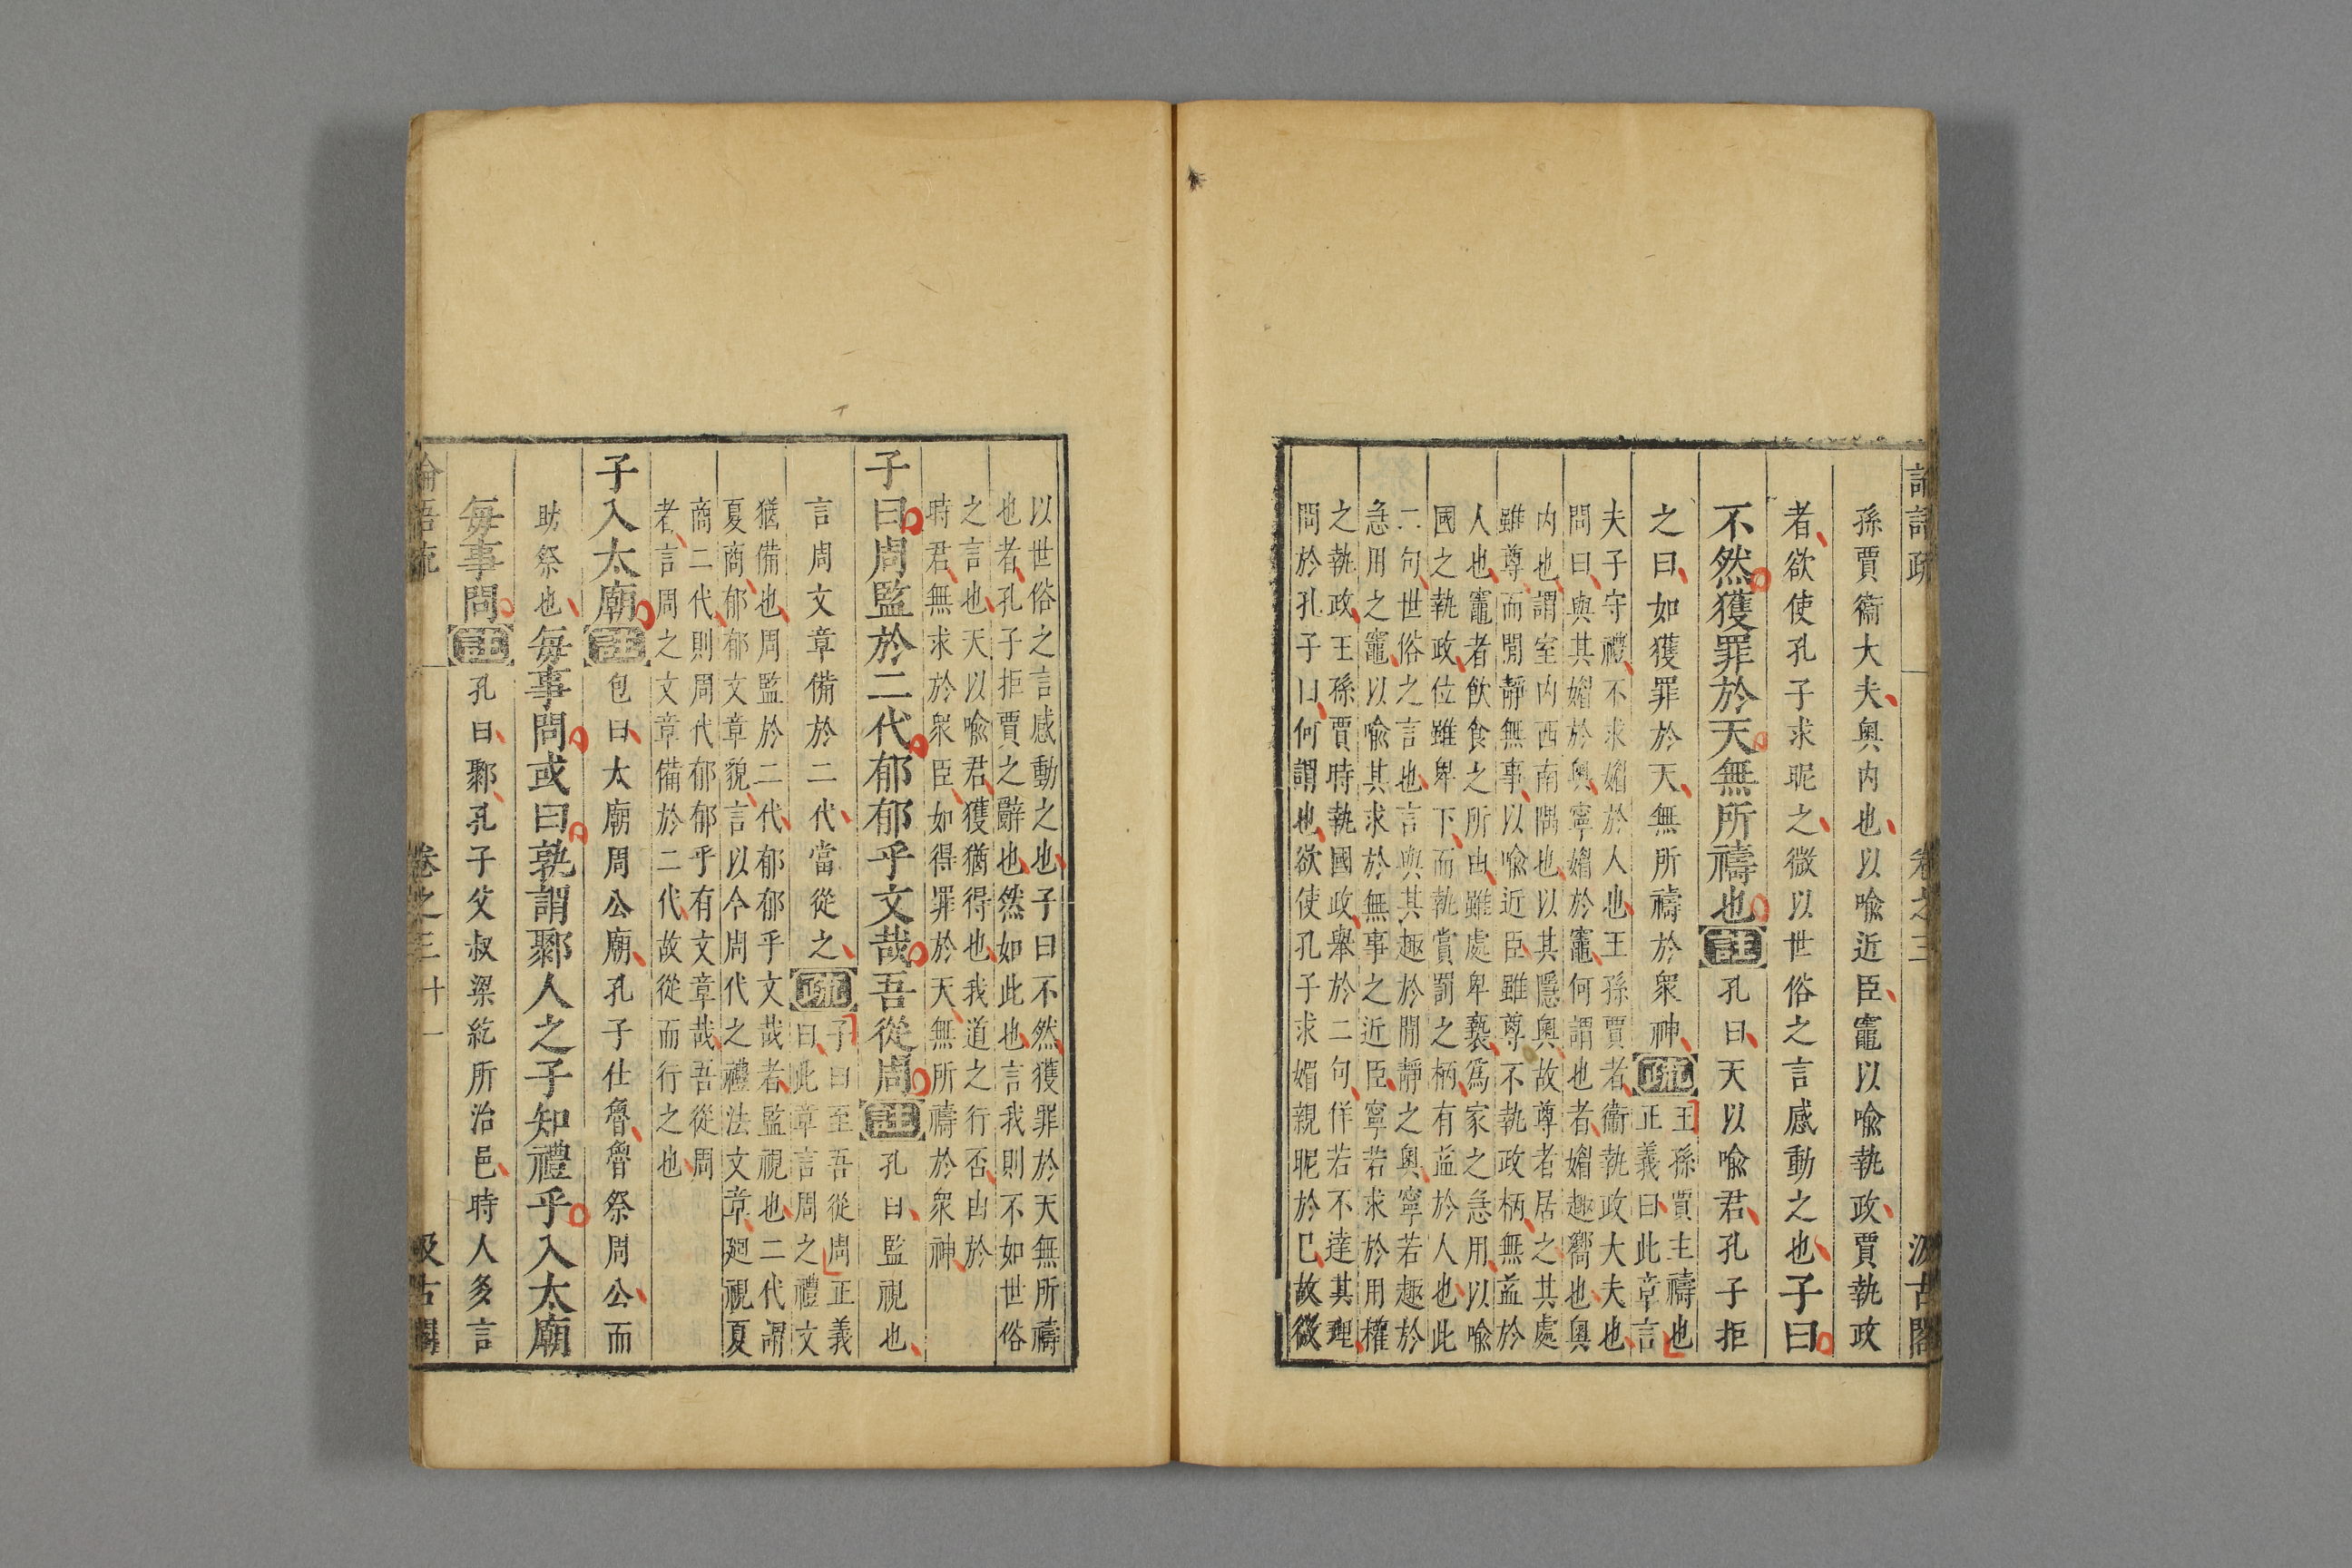 論語疏 卷之三 汲古閣
孫賈衞大夫奧内也以喩近臣竈以喩執政賈執政
者欲使孔子求昵之微以世俗之言感動之也子曰
不然獲罪於天無所禱也註孔曰天以喩君孔子拒
之曰如獲罪於天無所禱於衆神疏
王孫賈主禱也
正義曰此章言
夫子守禮不求媚於人也王孫賈者衞執政大夫也
問曰與其媚於奧寧媚於竈何謂也者媚趣嚮也奧
内也謂室内西南隅也以其隱奧故尊者居之其處
雖尊而閒靜無事以喩近臣雖尊不執政柄無益於
人也竈者飲食之所由雖處卑褻爲家之急用以喩
國之執政位雖卑下而執賞罰之柄有益於人也此
二句世俗之言也言與其趣於閒靜之奧寧若趣於
急用之竈以喩其求於無事之近臣寧若求於用權
之執政王孫賈時執國政舉於二句佯若不達其理
問於孔子曰何謂也欲使孔子求媚親昵於已故微
以世俗之言感動之也子曰不然獲罪於天無所禱
也者孔子拒賈之辭也然如此也言我則不如世俗
之言也天以喩君獲猶得也我道之行否由於
時君無求於衆臣如得罪於天無所禱於衆神
子曰周監於二代郁郁乎文哉吾從周註孔曰監視也
言周文章備於二代當從之疏
子曰至吾從周正義
曰此章言周之禮文
猶備也周監於二代郁郁乎文哉者監視也二代謂
夏商郁郁文章貌言以今周代之禮法文章廻視夏
商二代則周代郁郁乎有文章哉吾從周
者言周之文章備於二代故從而行之也
子入太廟註包曰太廟周公廟孔子仕魯魯祭周公而
助祭也每事問或曰孰謂鄹人之子知禮乎入太廟
每事問註孔曰鄹孔子父叔梁紇所治邑時人多言
論語疏 卷之三 十一 汲古閣